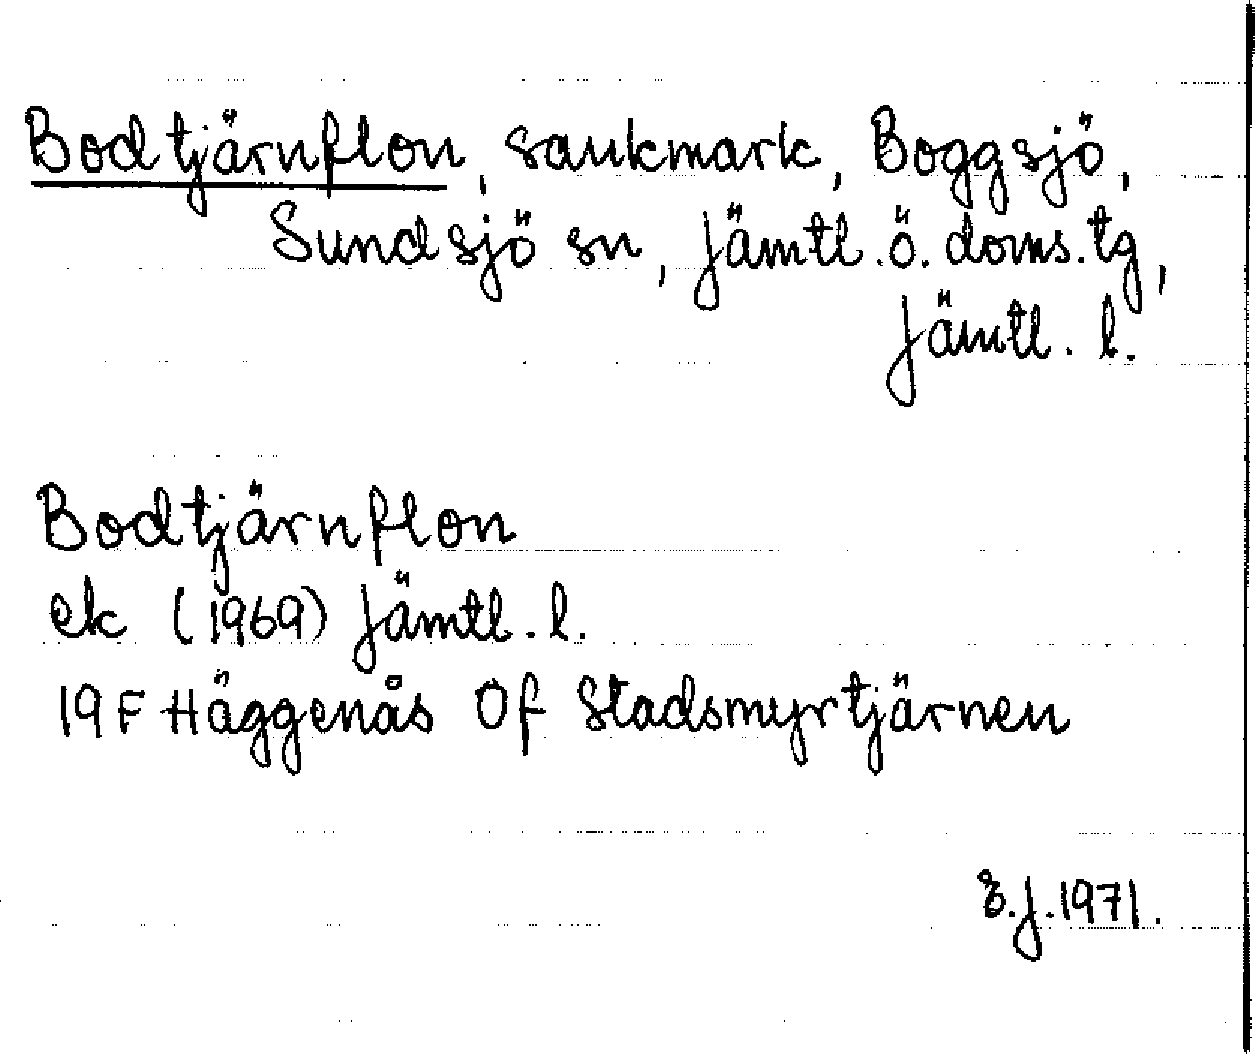 Bodtjärnflon, sankmark, Boggsjö,
Sundsjö sn, Jämtl.ö.doms.tg,
Jämtl. l.
Bodtjärnflon
ek (1969) Jämtl. l.
19F Häggenås Of Stadsmyrtjärnen
E.J. 1971.